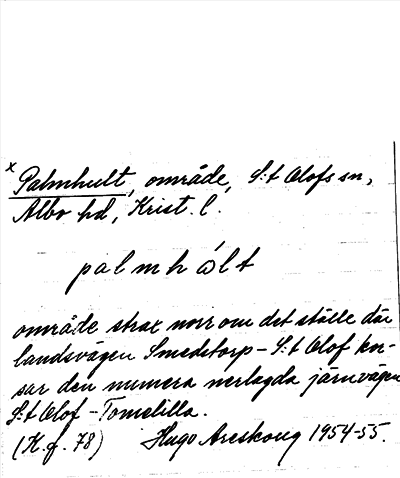 x Palmhult, område, S:t Olofs sn,
Albo hd, Krist. l.
palmhólt
område strax norr om det ställe där
landsvägen Smedstorp - S:t Olof kor-
sar den numera nerlagda järnvägen
S:t Olof - Tomelilla.
(K.f. 78) Hugo Areskoug 1954-55.